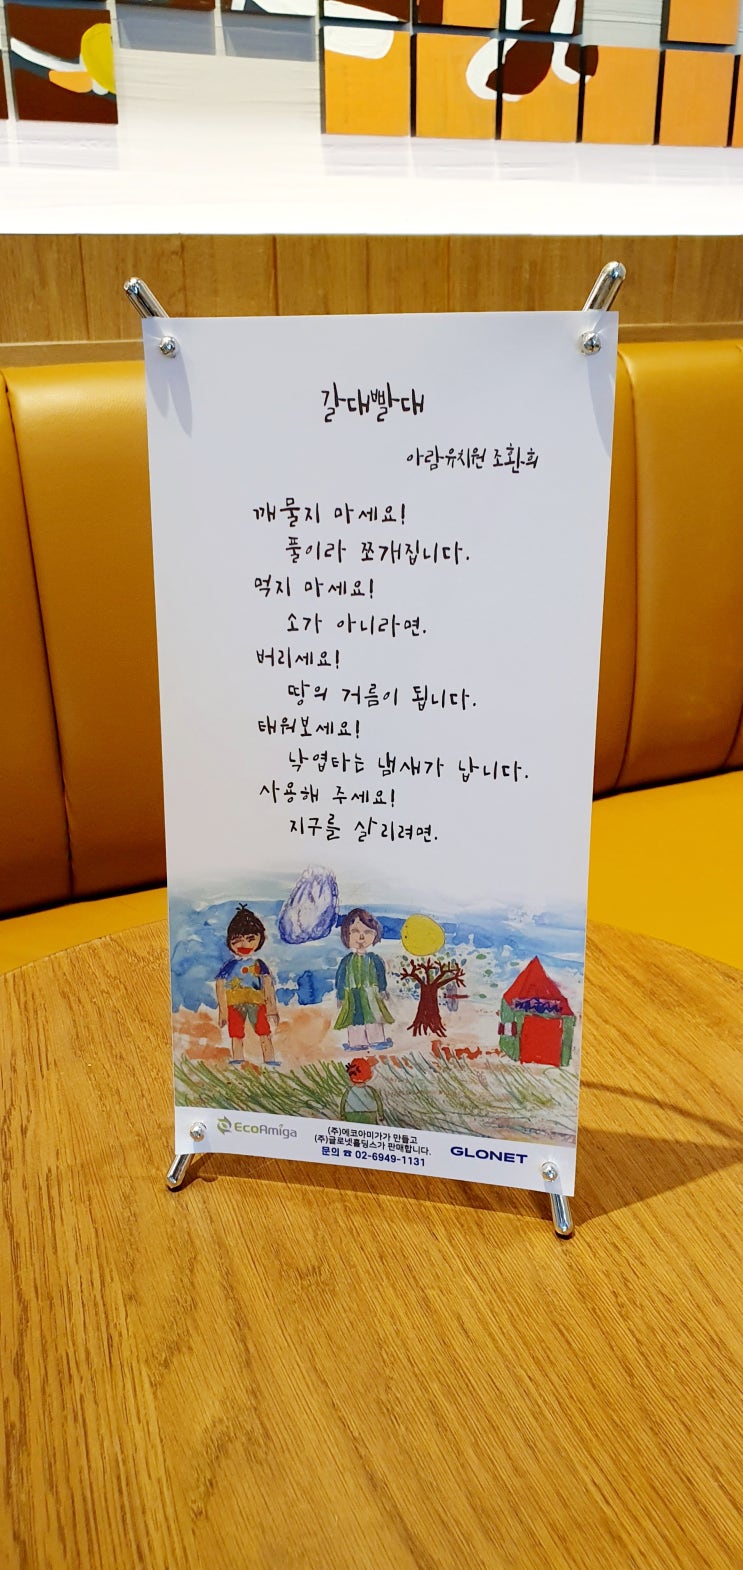 갈대빨대
아람유치원 조환희
깨물지 마세요!
풀이라 쪼개집니다.
먹지 마세요!
소가 아니라면.
버리세요!
땅의 거름이 됩니다.
태워보세요!
낙엽타는 냄새가 납니다.
사용해 주세요!
지구를 살리려면.
EcoAmiga
(주)에코아미가가 만들고
(주)글로넷홀딩스가 판매합니다.
문의 ☎ 02-6949-1131
GLONET